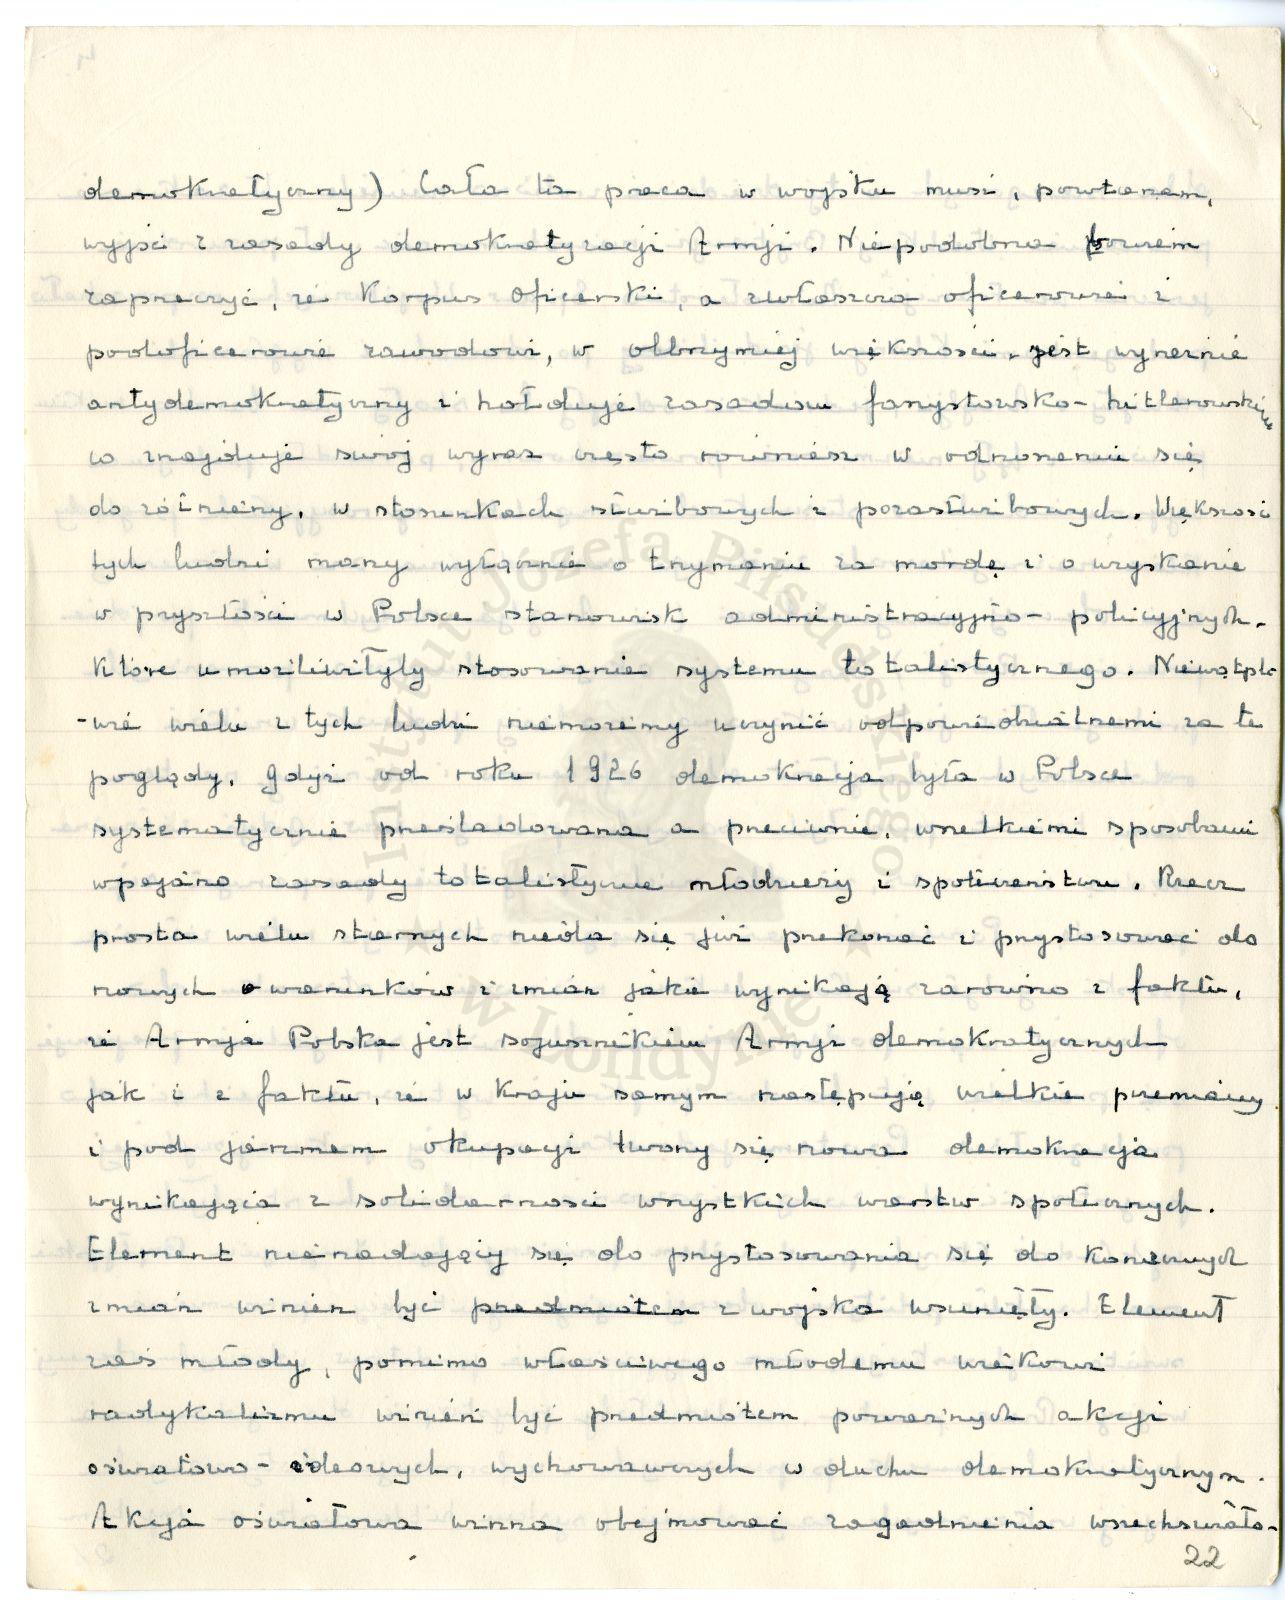 demokratyczny) Cała ta praca w wojsku musi, powtarzam,
wyjść z zasady demokratyzacji Armji. Niepodobna bowiem
zaprzeczyć, że Korpus Oficerski, a zwłaszcza oficerowie i
podoficerowie zawodowi, w olbrzymiej większości, jest wyraźnie
antydemokratyczny i hołduje zasadom faszystowsko-hitlerowskim
co znajduje swój wyraz często również w odnoszeniu się
do żołnierzy, w stosunkach służbowych i pozasłużbowych. Większość
tych ludzi marzy wyłącznie o trzymaniu za mordę i o uzyskanie
w przyszłości w Polsce stanowisk administracyjno-policyjnych.
Które umożliwiłyby stosowanie systemu totalistycznego. Niewątpli-
-wie wielu z tych ludzi niemożemy uczynić odpowiedzialnemi za te
poglądy. gdyż od roku 1926 demokracja była w Polsce
systematycznie prześladowana a przeciwnie, wszelkiemi sposobami
wpajano zasady totalistyczne młodzieży i społeczeństwu. Rzecz
prosta wielu starszych nieda się już przekonać i przystosować do
nowych warunków i zmian jakie wynikają zarówno z faktu,
że Armja Polska jest sojusznikiem Armji demokratycznych
jak i z faktu, że w Kraju samym następują wielkie przemiany
i pod jarzmem okupacji tworzy się nowa demokracja
wynikająca z solidarności wszystkich warstw społecznych.
Element nienadający się do przystosowania się do koniecznych
zmian winien być przedmiotem z wojska usunięty. Element
zaś młody, pomimo właściwego młodemu wiekowi
radykalizmu winien być przedmiotem poważnych akcji
oświatowo-ideowych, wychowawczych w duchu demokratycznym.
Akcja oświatowa winna obejmować zagadnienia wszechświato-
22
Instytut Józefa Piłsudskiego
w Londynie